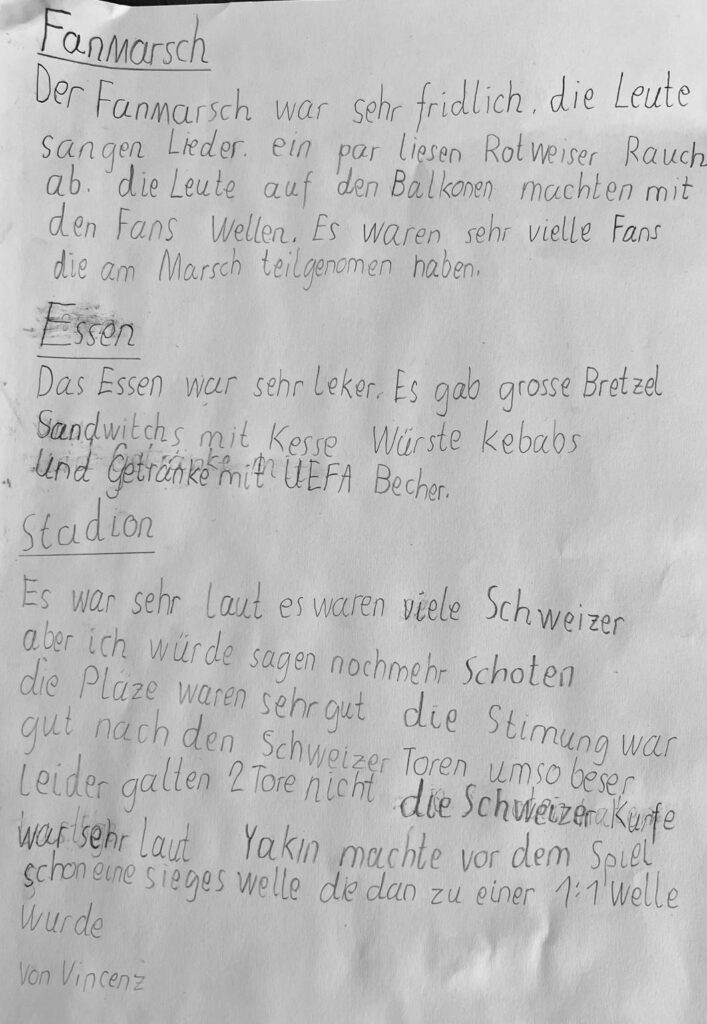 Fanmarsch
Der Fanmarsch war sehr fridlich. die Leute
sangen Lieder. ein par liesen Rotweiser Rauch
ab. die Leute auf den Balkonen machten mit
den Fans Wellen. Es waren sehr vielle Fans
die am Marsch teilgenomen haben.
Essen
Das Essen war sehr leker. Es gab grosse Bretzel
Sandwitchs mit Kesse Würste kebabs
und Getränke mit UEFA Becher.
Stadion
Es war sehr laut es waren viele Schweizer
aber ich würde sagen nochmehr Schoten
die Pläze waren sehr gut die Stimung war
gut nach den Schweizer Toren umso beser
leider galten 2 Tore nicht die Schweizer Kurfe
war sehr laut Yakin machte vor dem Spiel
schon eine sieges welle die dan zu einer 1:1 Welle
wurde
von Vincenz